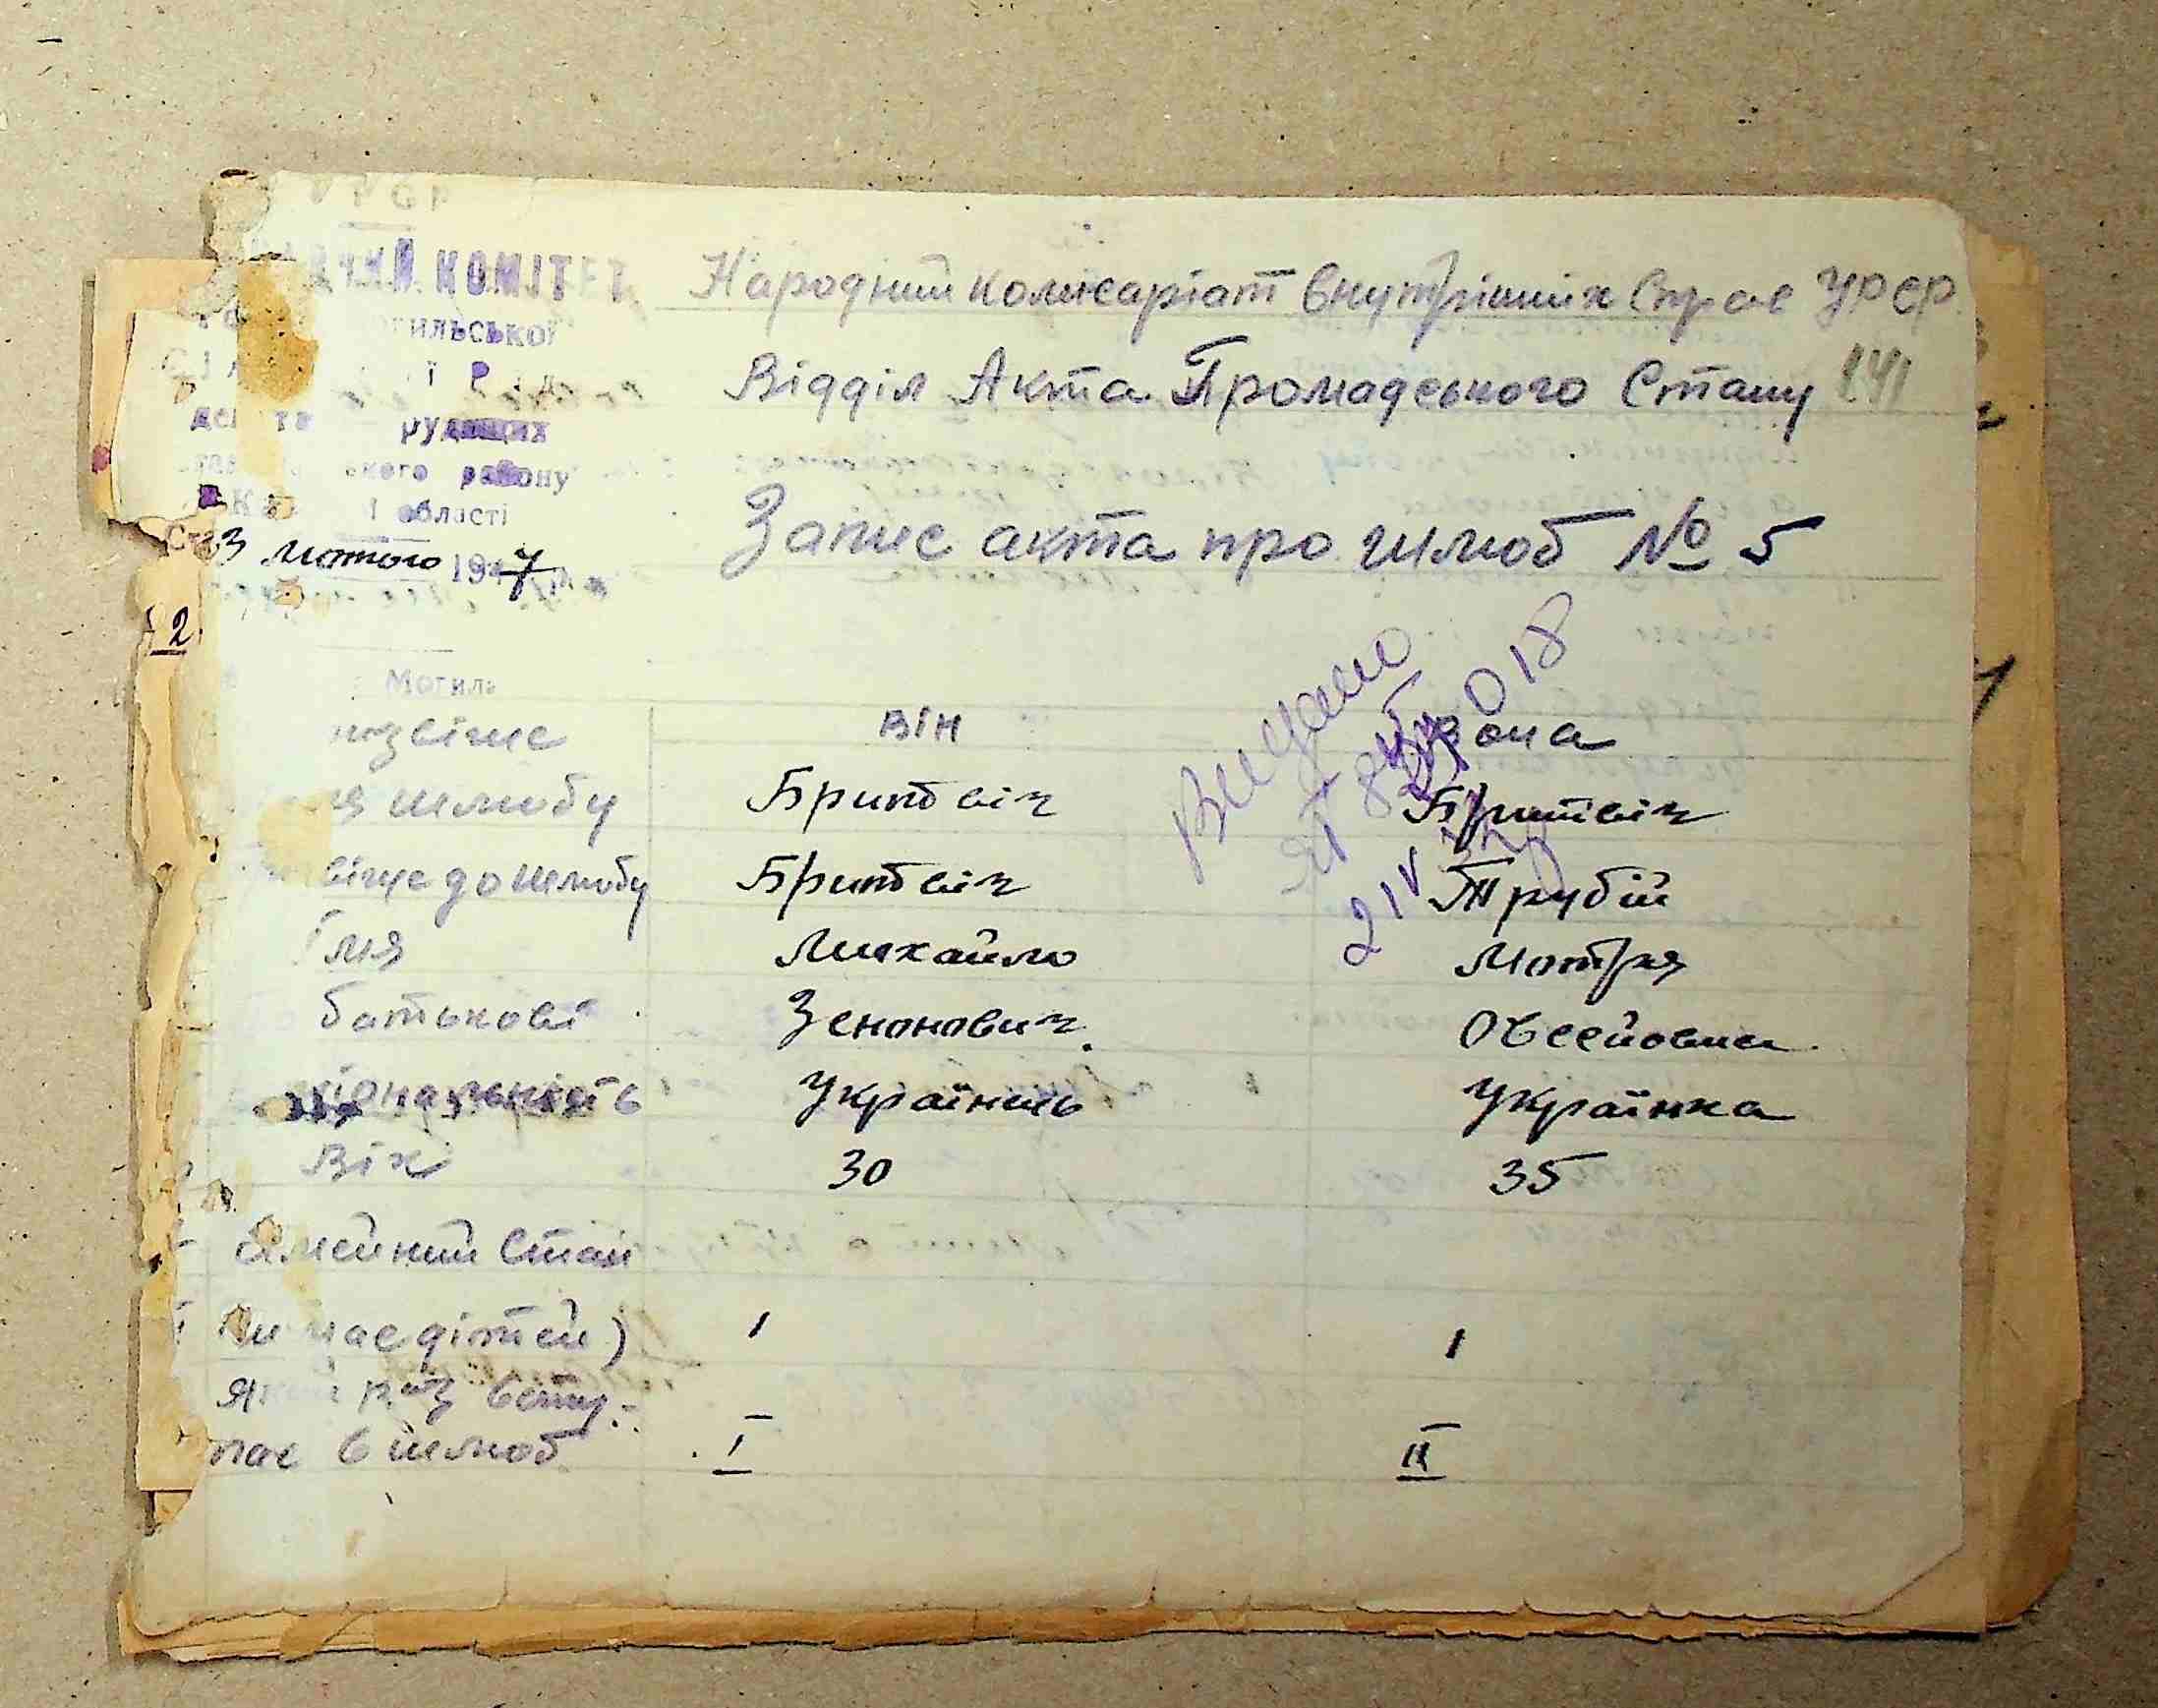 УРСР
КОМІТЕТ
гильської
ї
рудящих
ського району
області
3 лютого 1947
2
Могиль
Народний комісаріат Внутрішніх Справ УРСР
Відділ Акта Громадського Стану 141
Запис акта про шлюб № 5
Видано
018
21 V
різвіще Він Вона
ля шлюбу Бритвіч Бритвіч
віще до шлюбу Бритвіч Трубій
Імя Михайло Мотря
батькові Зенонович Овсейовна
ціональність Українець Українка
Вік 30 35
Сімейний Стан
Чи має дітей) 1 1
Який раз всту-
пає в шлюб I II